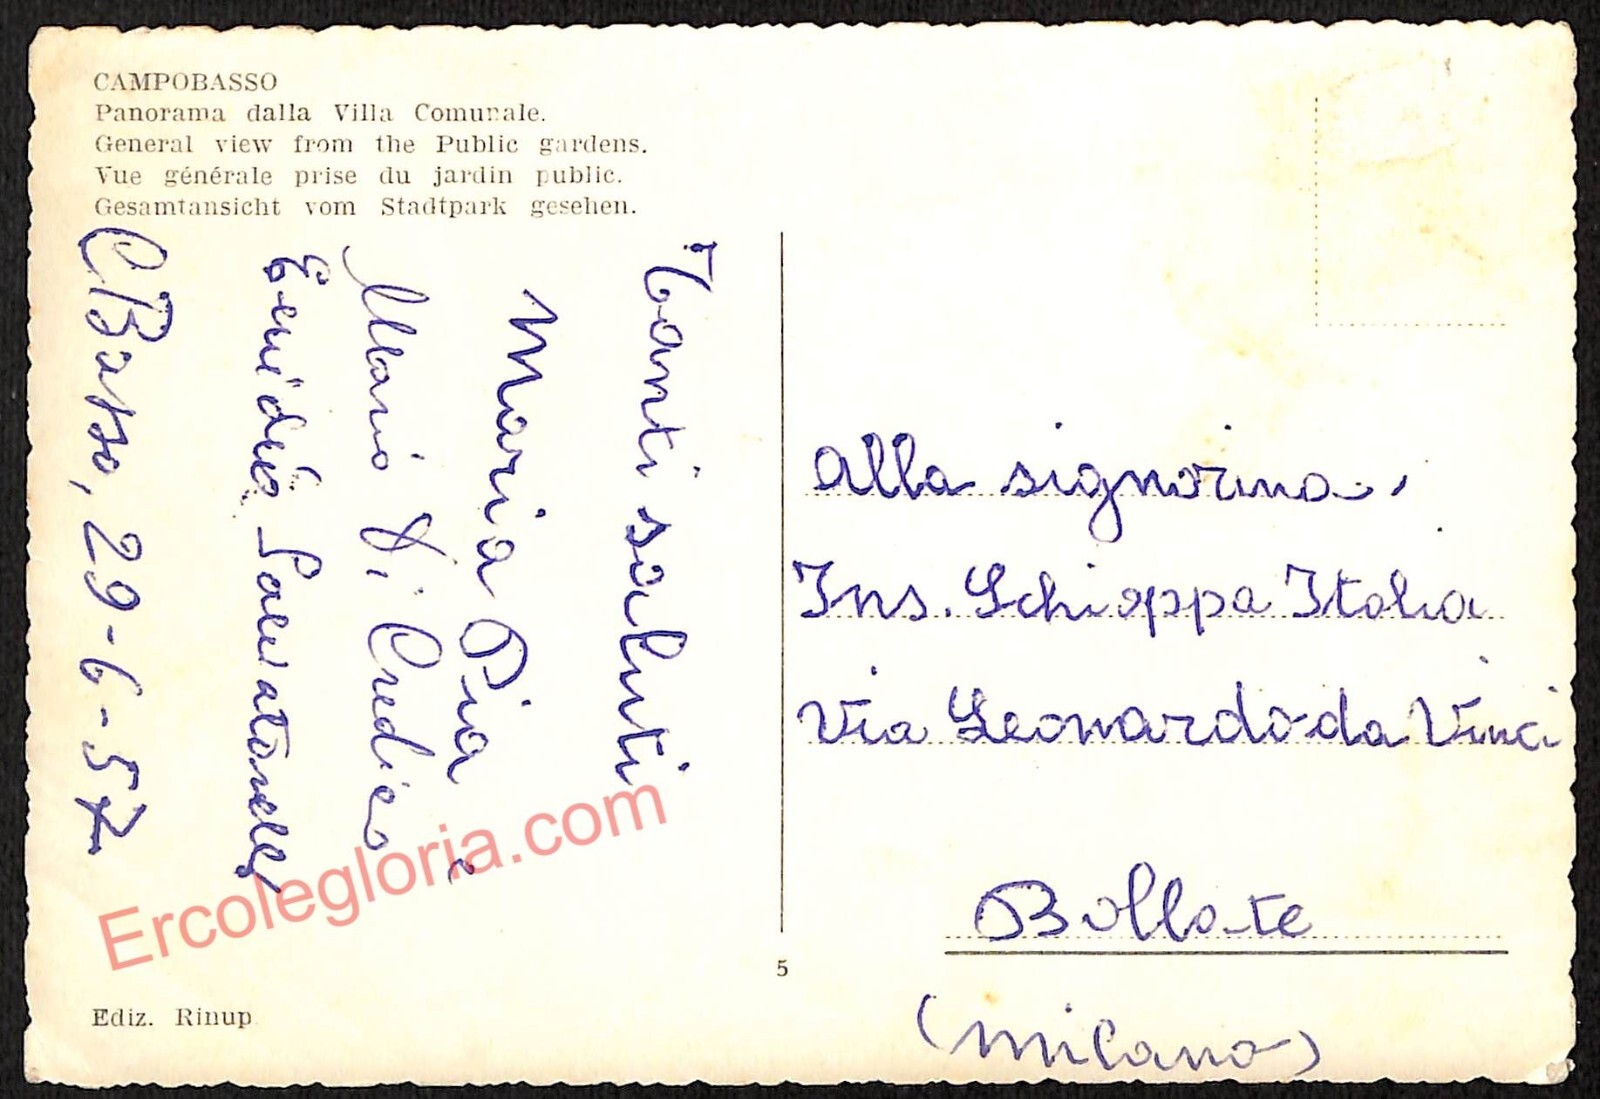 CAMPOBASSO
Panorama dalla Villa Comunale.
General view from the Public gardens.
Vue générale prise du jardin public.
Gesamtansicht vom Stadtpark gesehen.
Tanti saluti
Maria Pia e
Mario Di Credico
CBasso, 29-6-57
Alla signorina,
Ins. Schioppa Italia
Via Leonardo da Vinci
Bollate
(Milano)
5
Ediz. Rinup
Ercolegloria.com